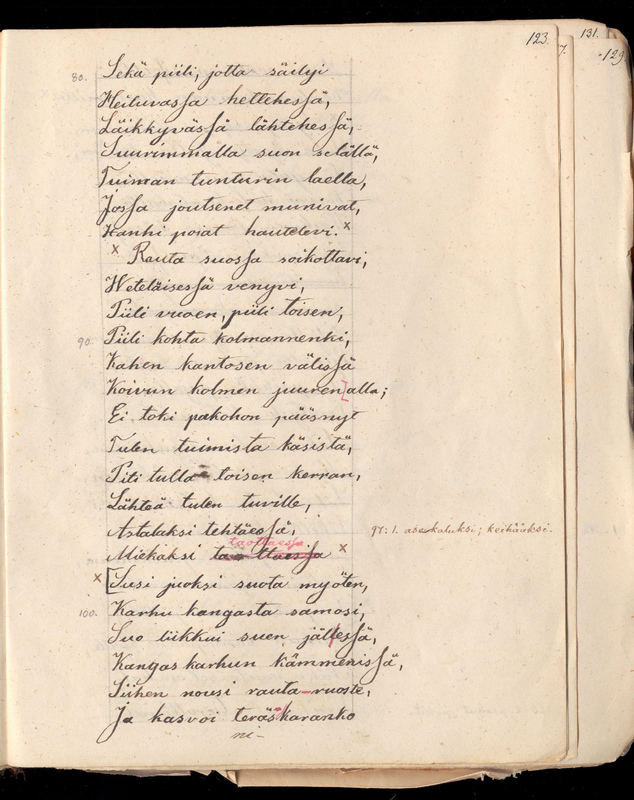 123.
131.
129.
7.
80. Sekä piili, jotta säilyi
Heiluvassa hettehessä,
Läikkyvässä lähtehessä,
Suurimmalla suon selällä,
Tuiman tunturin laella,
Jossa joutsenet munivat,
Hanhi poiat hautelevi. x
x Rauta suossa soikottavi,
Weteläisessä venyvi,
Piili vuoen, piili toisen,
90. Piili kohta kolmannenki,
Kahen kantosen välissä
Koivun kolmen juuren[alla;
Ei toki pakohon päässyt
Tulen tuimista käsistä,
Piti tulla toisen kerran,
Lähteä tulen tuville,
Astalaksi tehtäessä, 97: 1. asekaluksi; keihääksi.
taottaessa
Miekaksi tao ttaessa x
x [Susi juoksi suota myöten,
100. Karhu kangasta samosi,
Suo liikkui suen jällessä,
Kangas karhun kämmenissä,
Siihen nousi rauta-ruoste,
Ja kasvoi teräs-karanko
ni-